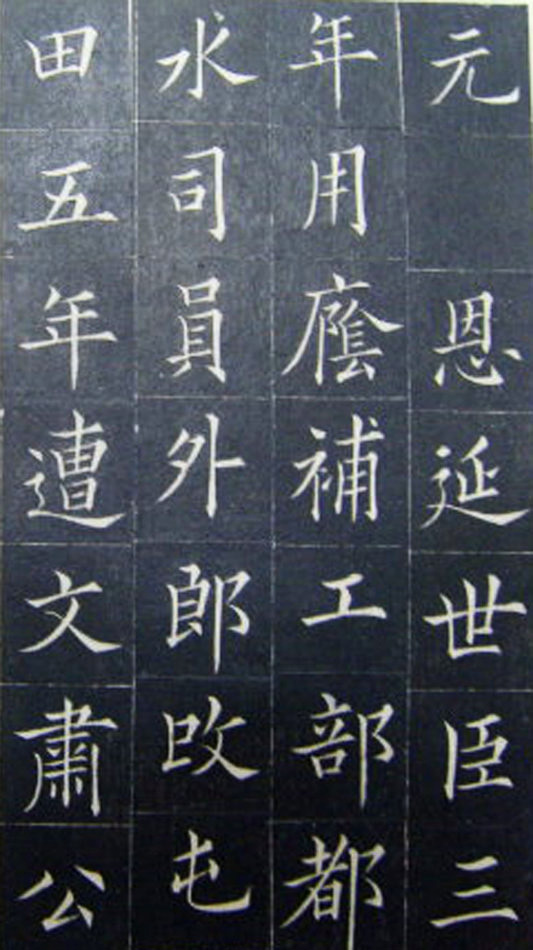 元　恩延世臣三
年用廕補工部都
水司員外郎改屯
田五年遭文肅公